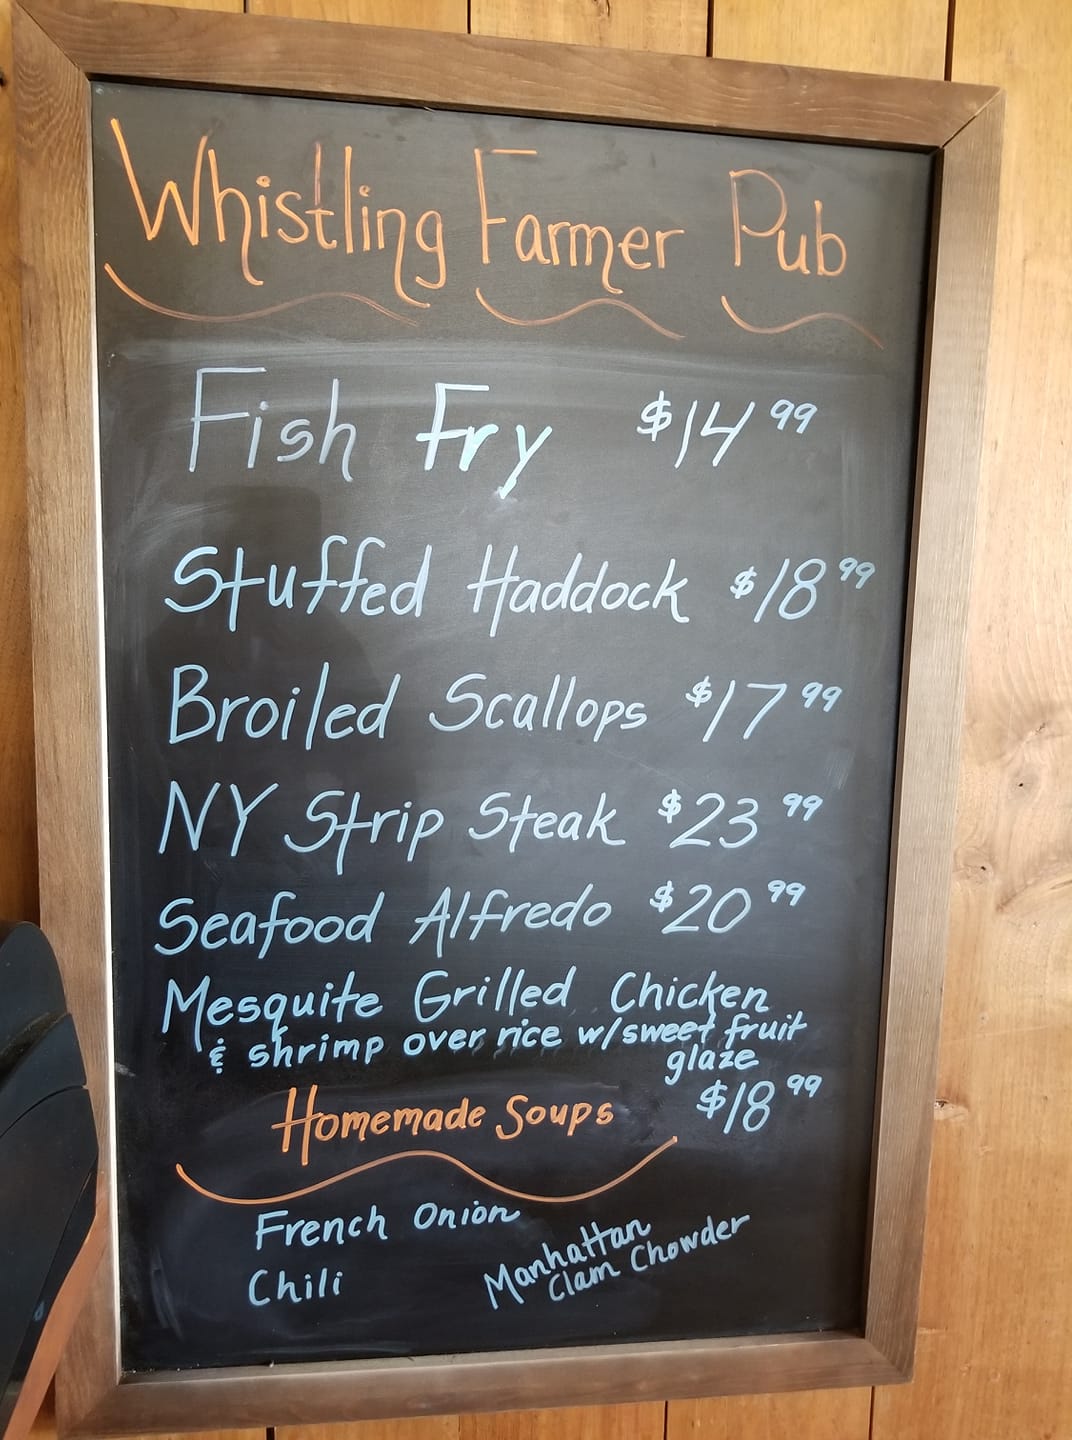 Whistling Farmer Pub
Fish Fry $14.99
Stuffed Haddock $18.99
Broiled Scallops $17.99
NY Strip Steak $23.99
Seafood Alfredo $20.99
Mesquite Grilled Chicken
& shrimp over rice w/sweet fruit
glaze
$18.99
Homemade Soups
French Onion
Chili
Manhattan
Clam Chowder